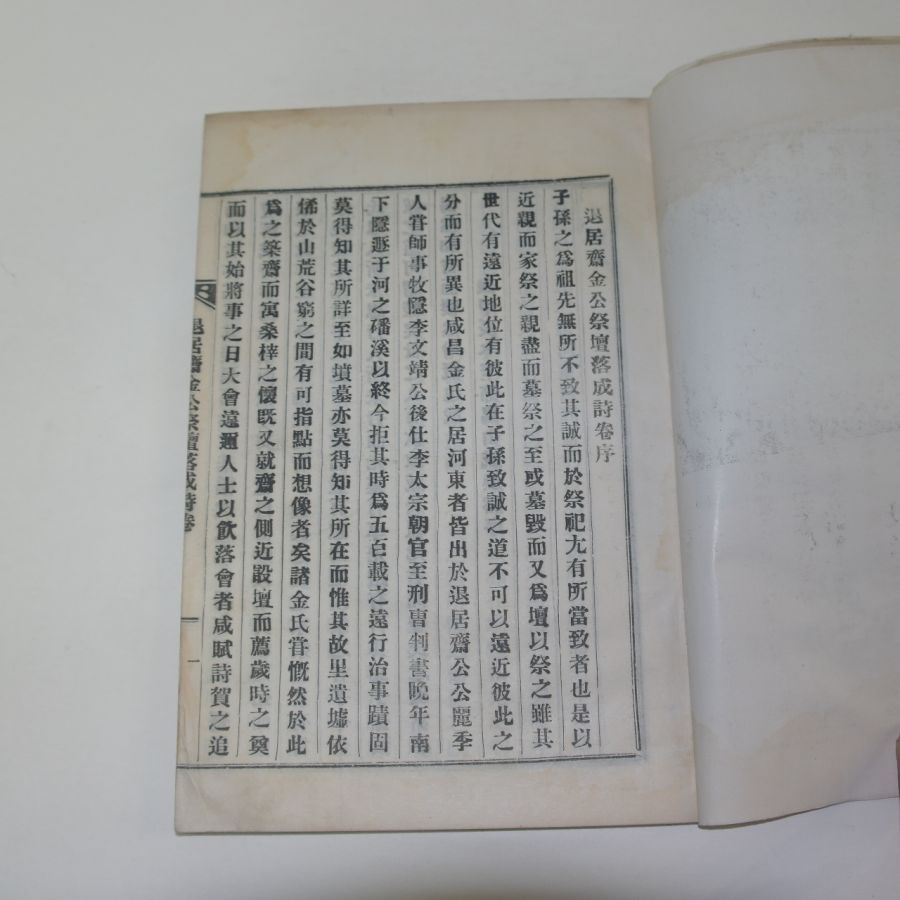 退居齋金公祭壇落成詩卷序
子孫之爲祖先無所不致其誠而於祭祀尢有所當致者也是以
近親而家祭之親盡而墓祭之至或墓毀而又爲壇以祭之雖其
世代有遠近地位有彼此在子孫致誠之道不可以遠近彼此之
分而有所異也咸昌金氏之居河東者皆出於退居齋公公麗季
人甞師事牧隱李文靖公後仕李太宗朝官至刑曺判書晩年南
下隱遯于河之磻溪以終今拒其時爲五百載之遠行治事蹟固
莫得知其所詳至如墳墓亦莫得知其所在而惟其故里遺墟依
俙於山荒谷窮之間有可指點而想像者矣諸金氏甞慨然於此
爲之築齋而寓桑梓之懷旣又就齋之側近設壇而薦歲時之奠
而以其始將事之日大會遠邇人士以飮落會者咸賦詩賀之追
退居齋金公祭壇落成詩卷
一